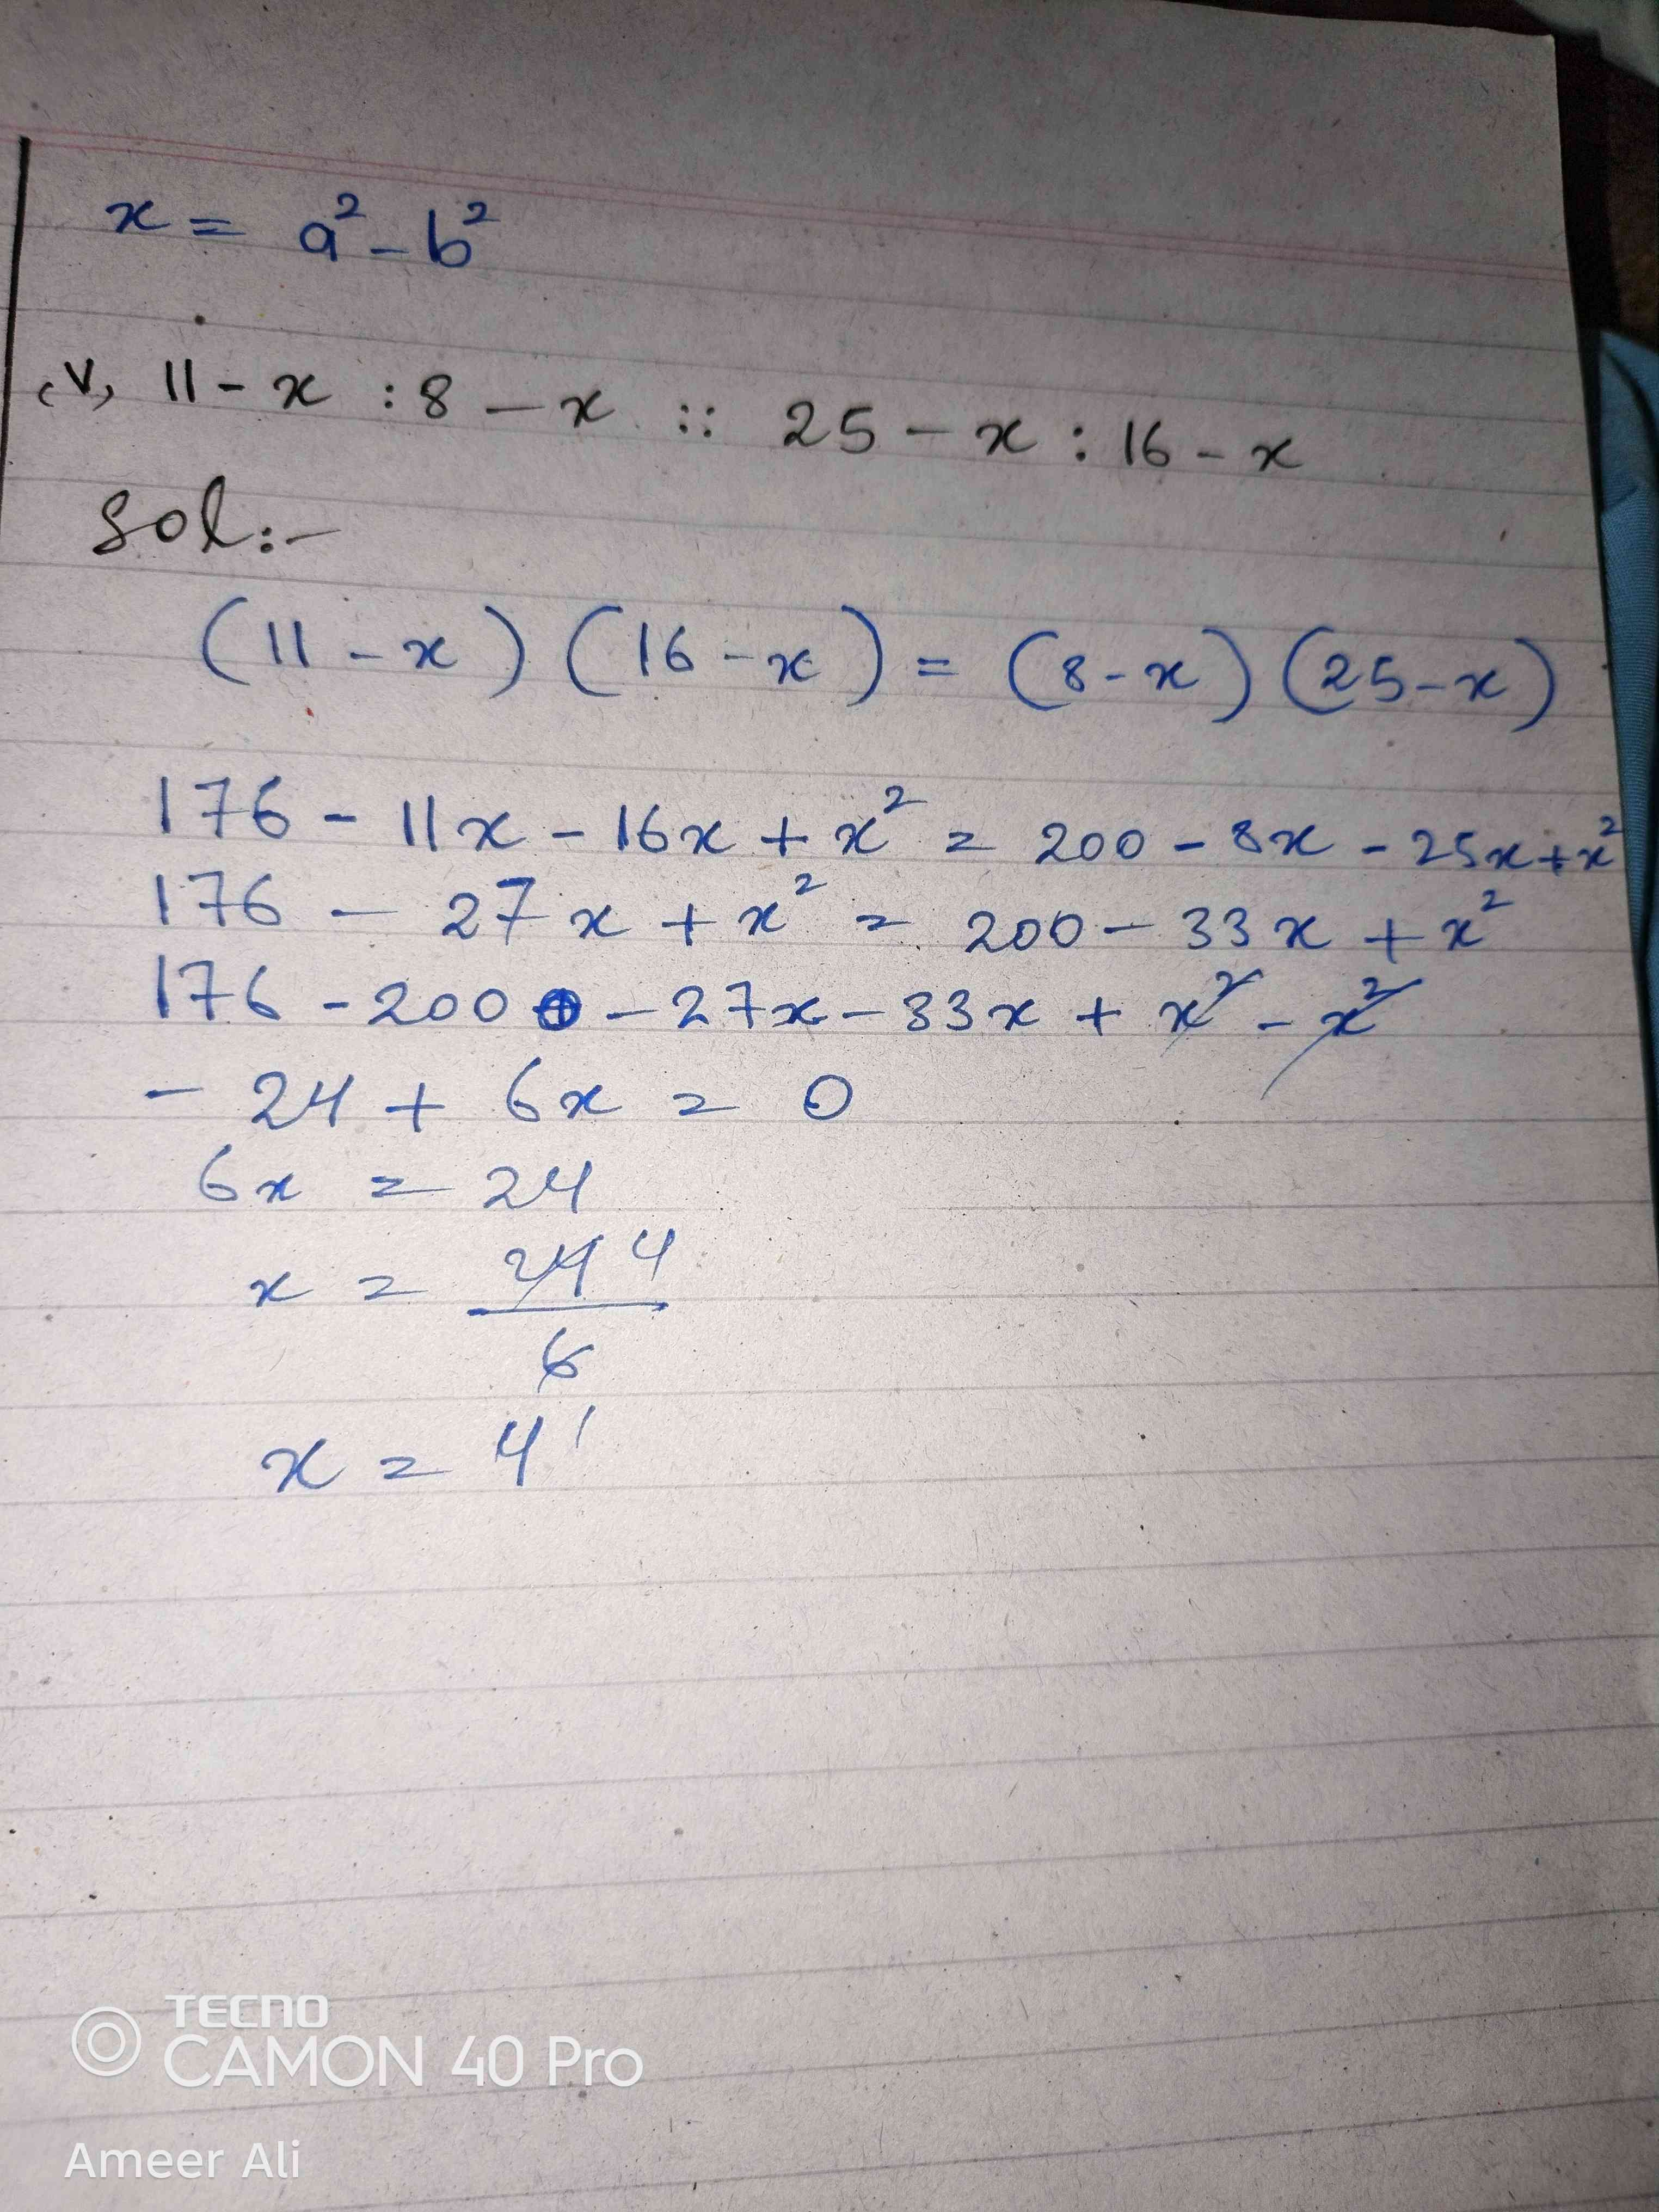 x = a² - b²
(v) 11 - x : 8 - x :: 25 - x : 16 - x
Sol:-
(11 - x) (16 - x) = (8 - x) (25 - x)
176 - 11x - 16x + x² = 200 - 8x - 25x + x²
176 - 27x + x² = 200 - 33x + x²
176 - 200 - 27x - 33x + x² - x²
- 24 + 6x = 0
6x = 24
x = 24 4
6
x = 4
TECNO
CAMON 40 Pro
Ameer Ali